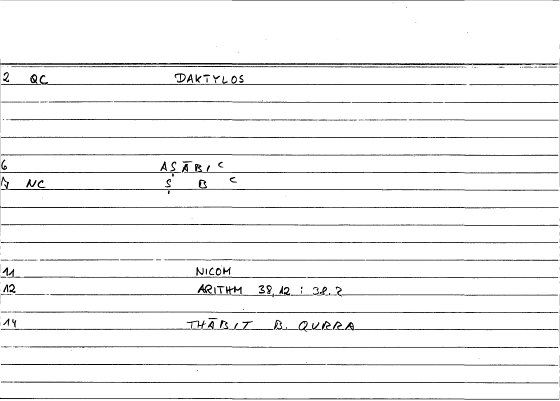 2 QC DAKTYLOS
6 AṢĀBIʿ
NC Ṣ B ʿ
11 NICOM
12 ARITHM 38,12 : 38.2
14 THĀBIT B. QURRA